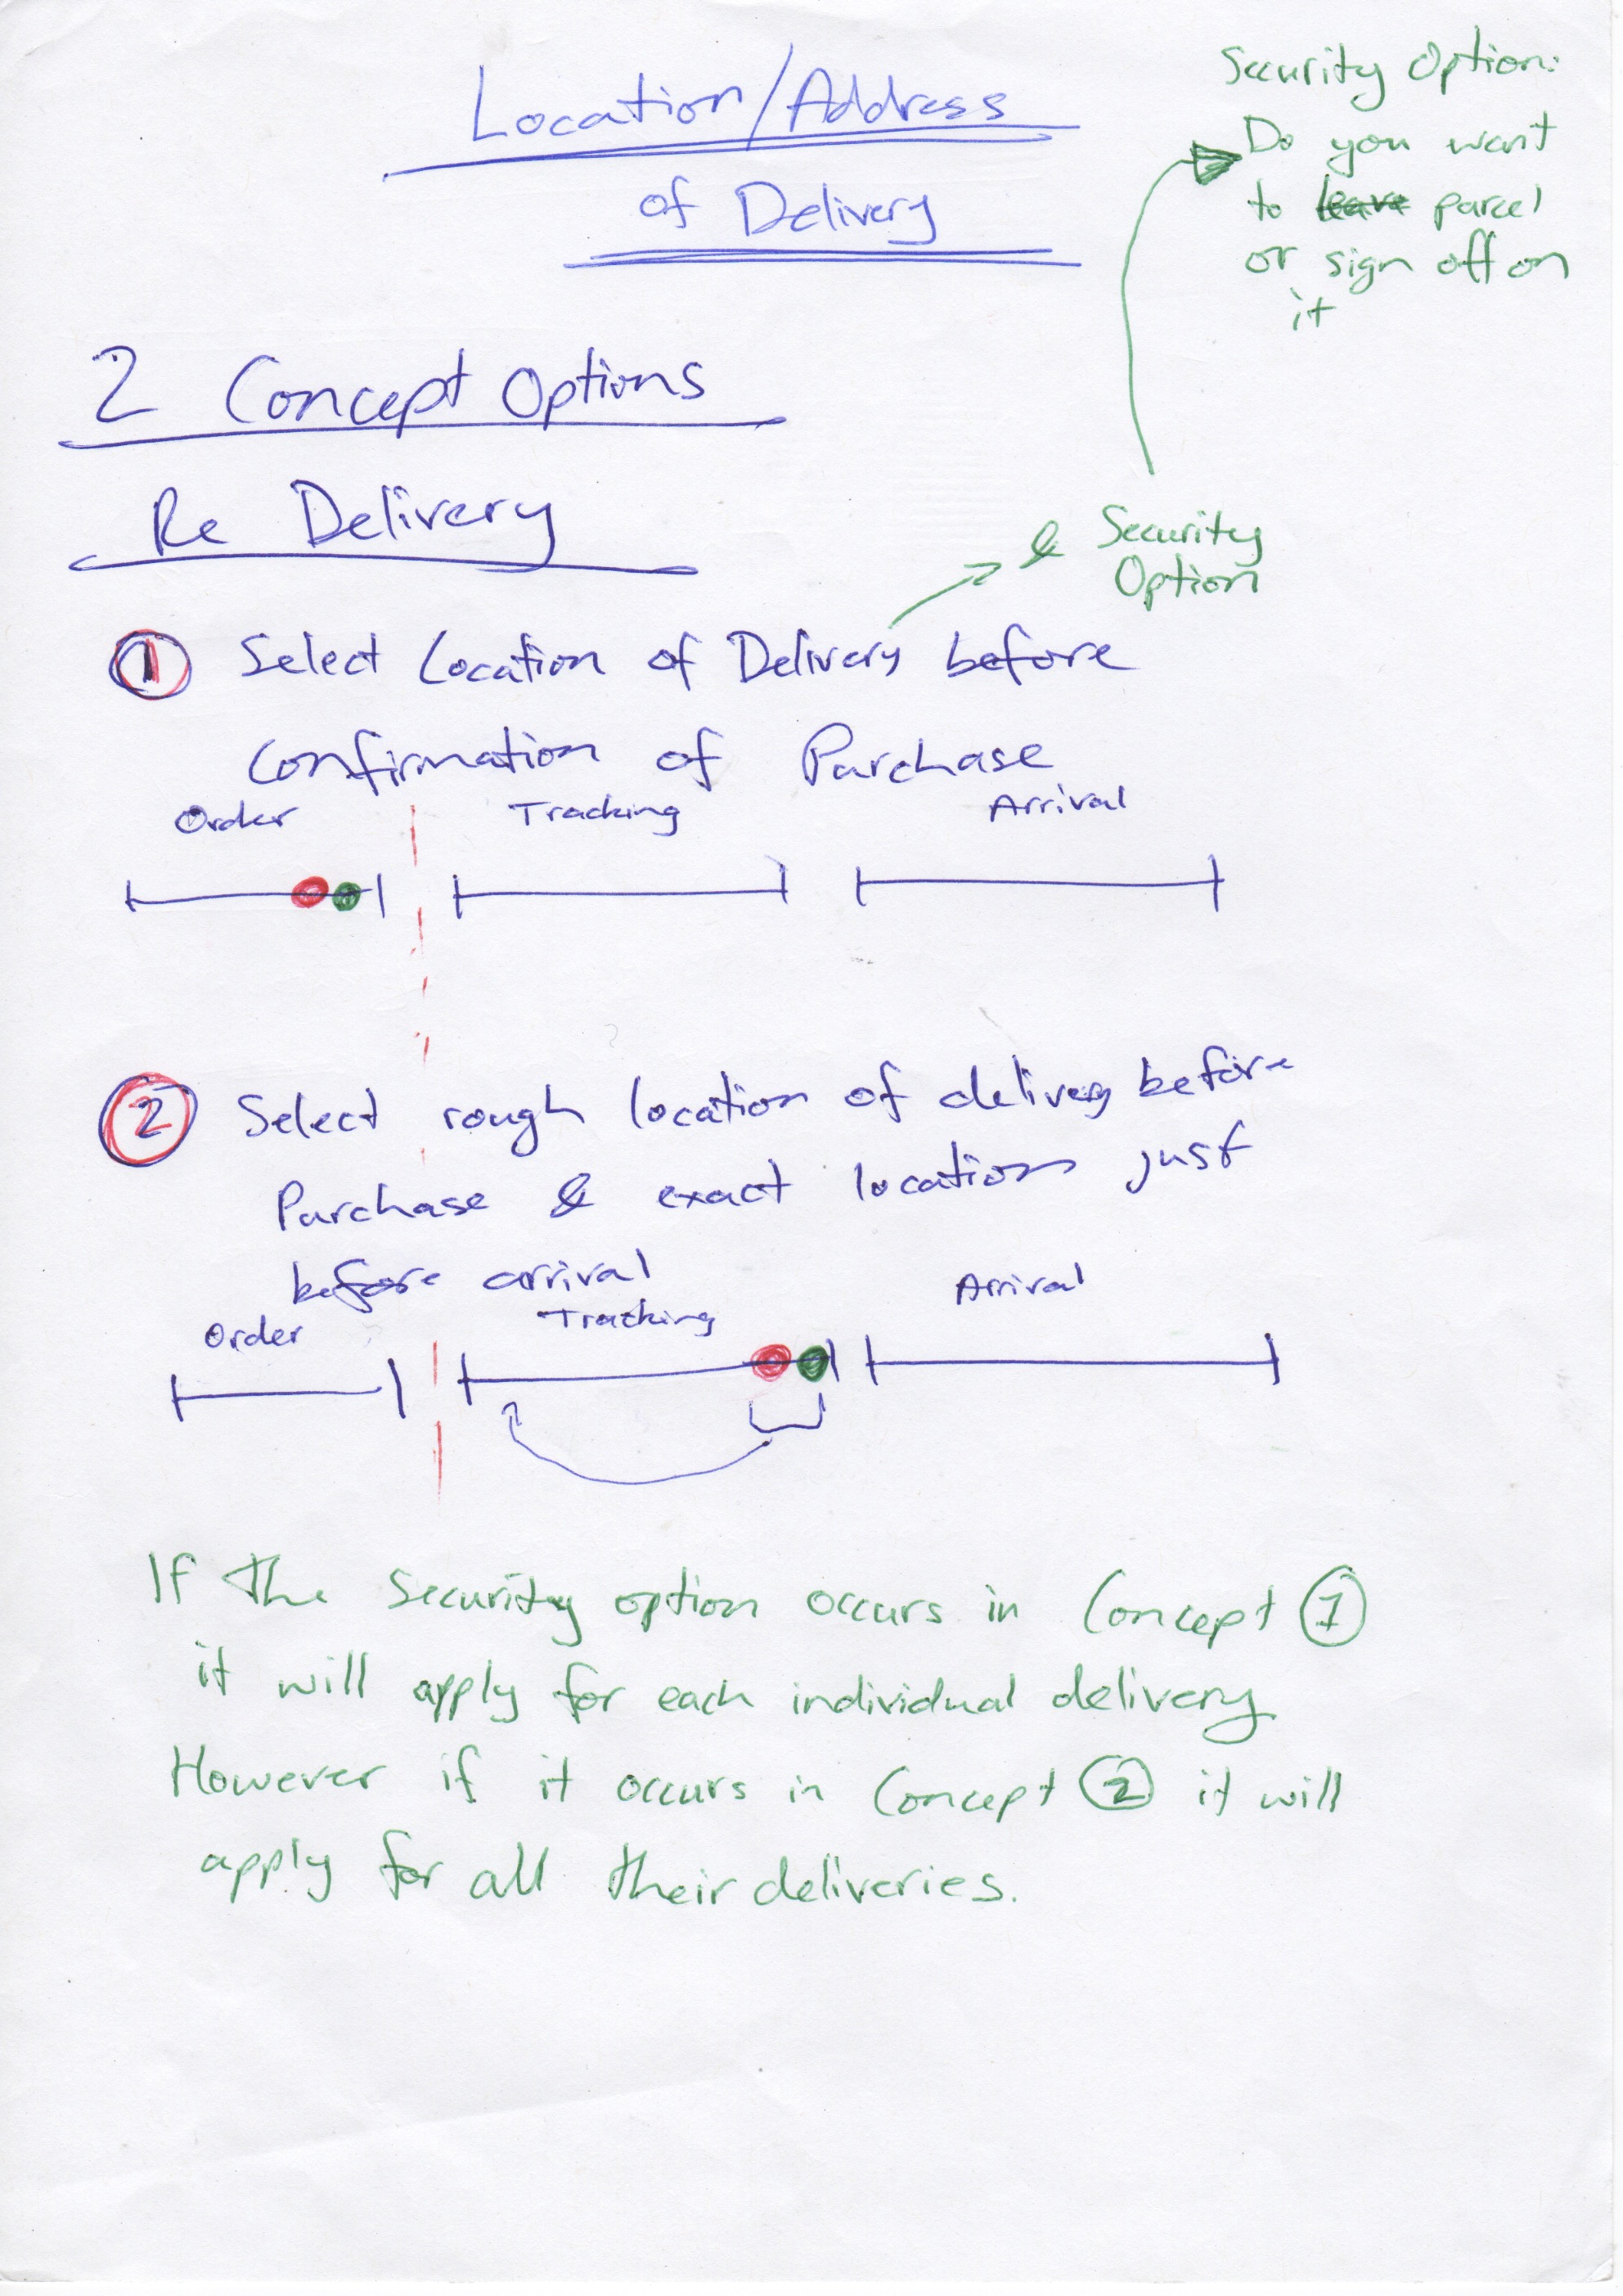 Location/Address
of Delivery
Security Option:
Do you want
to leave parcel
or sign off on
it
2 Concept Options
Re Delivery
& Security
Option
1 Select Location of Delivery before
confirmation of Purchase
Order Tracking Arrival
2 Select rough location of delivery before
Purchase & exact location just
before arrival
Order Tracking Arrival
If the security option occurs in Concept 1
it will apply for each individual delivery
However if it occurs in Concept 2 it will
apply for all their deliveries.